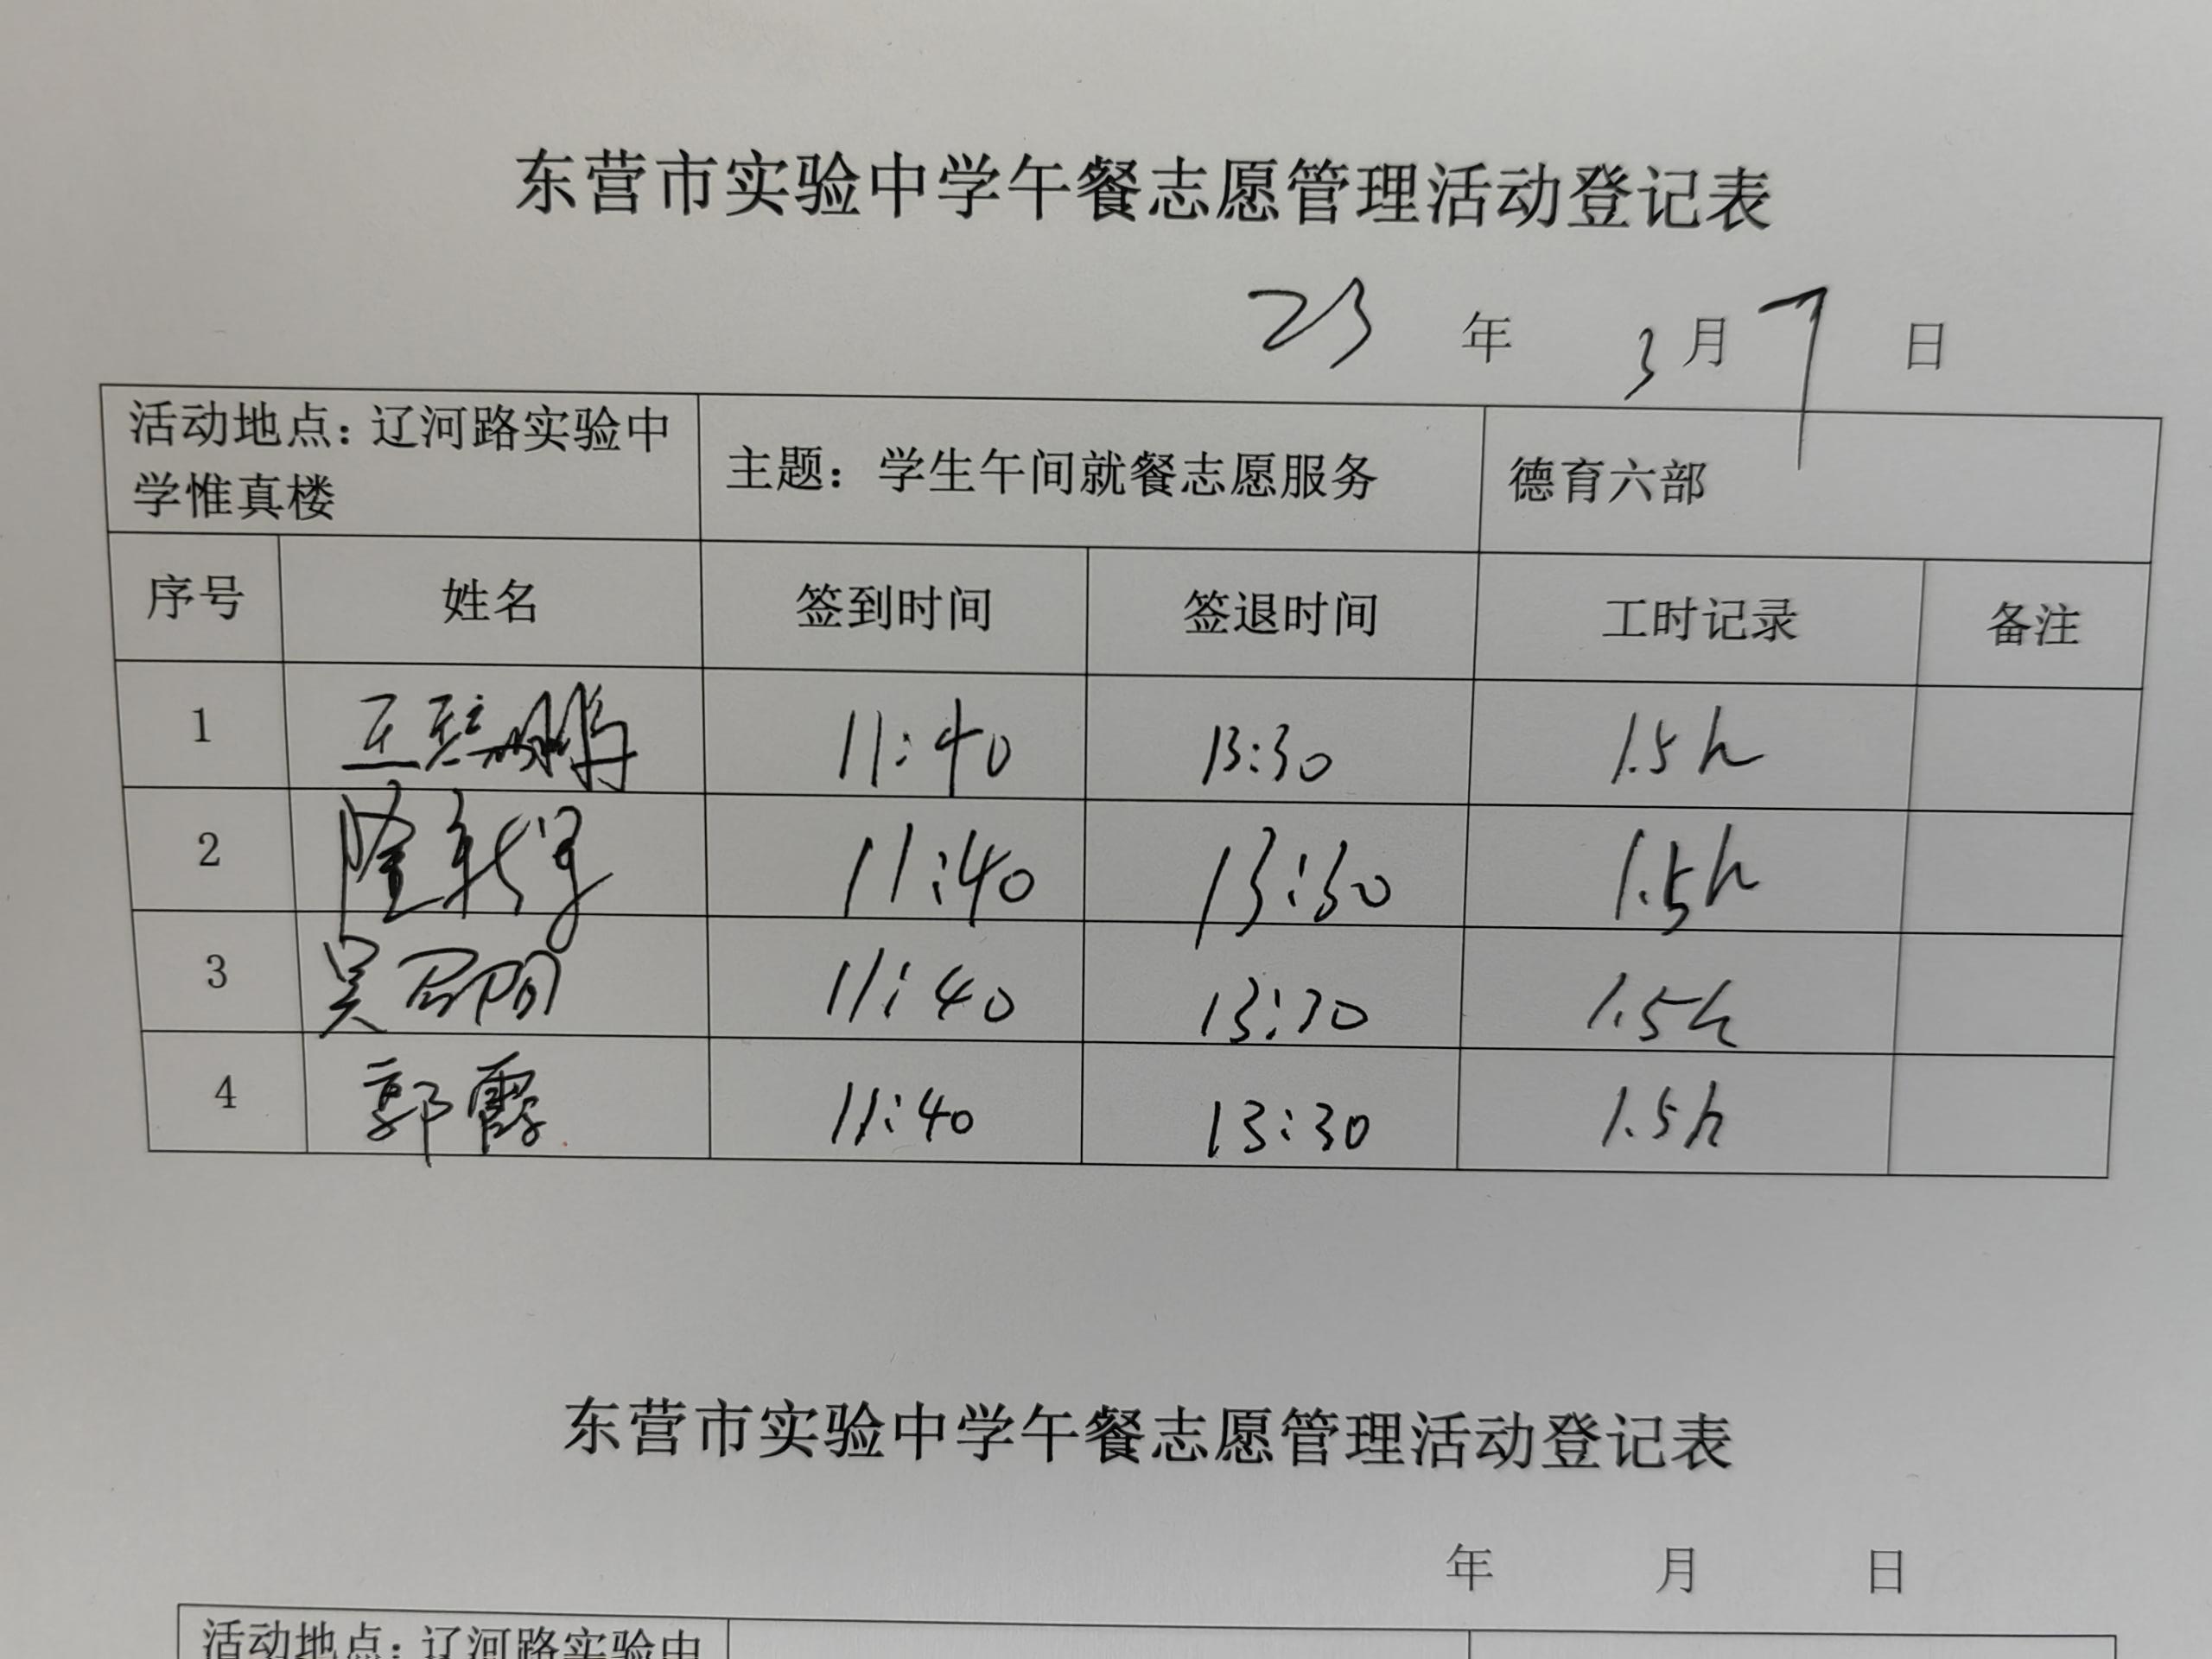 东营市实验中学午餐志愿管理活动登记表
23 年 3月7 日
活动地点：辽河路实验中
学惟真楼
主题：学生午间就餐志愿服务
德育六部
序号 姓名 签到时间 签退时间 工时记录 备注
1 11:40 13:30 1.5h
2 11:40 13:30 1.5h
3 吴 11:40 13:30 1.5h
4 郭霞 11:40 13:30 1.5h
东营市实验中学午餐志愿管理活动登记表
年 月 日
活动地点：辽河路实验中